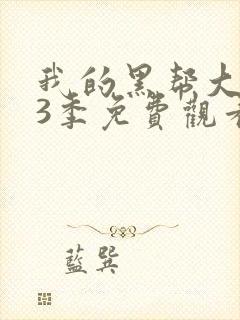 我的黑帮大
3季免費觀看
藍巽